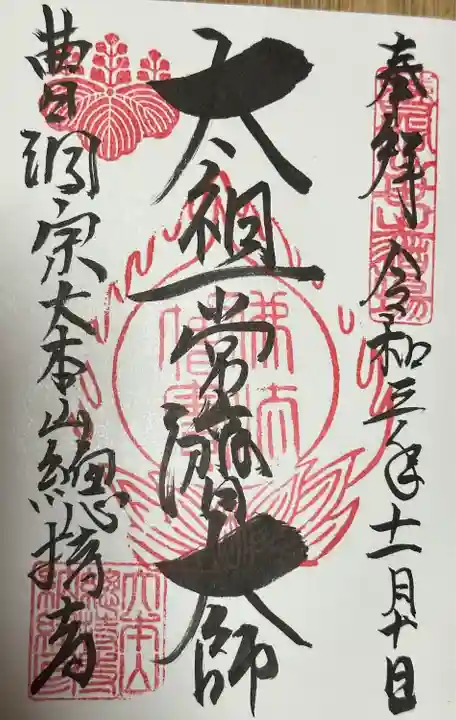 奉拝 令和三年十一月十日
太祖常濟大師
佛法僧寶
曹洞宗大本山總持寺